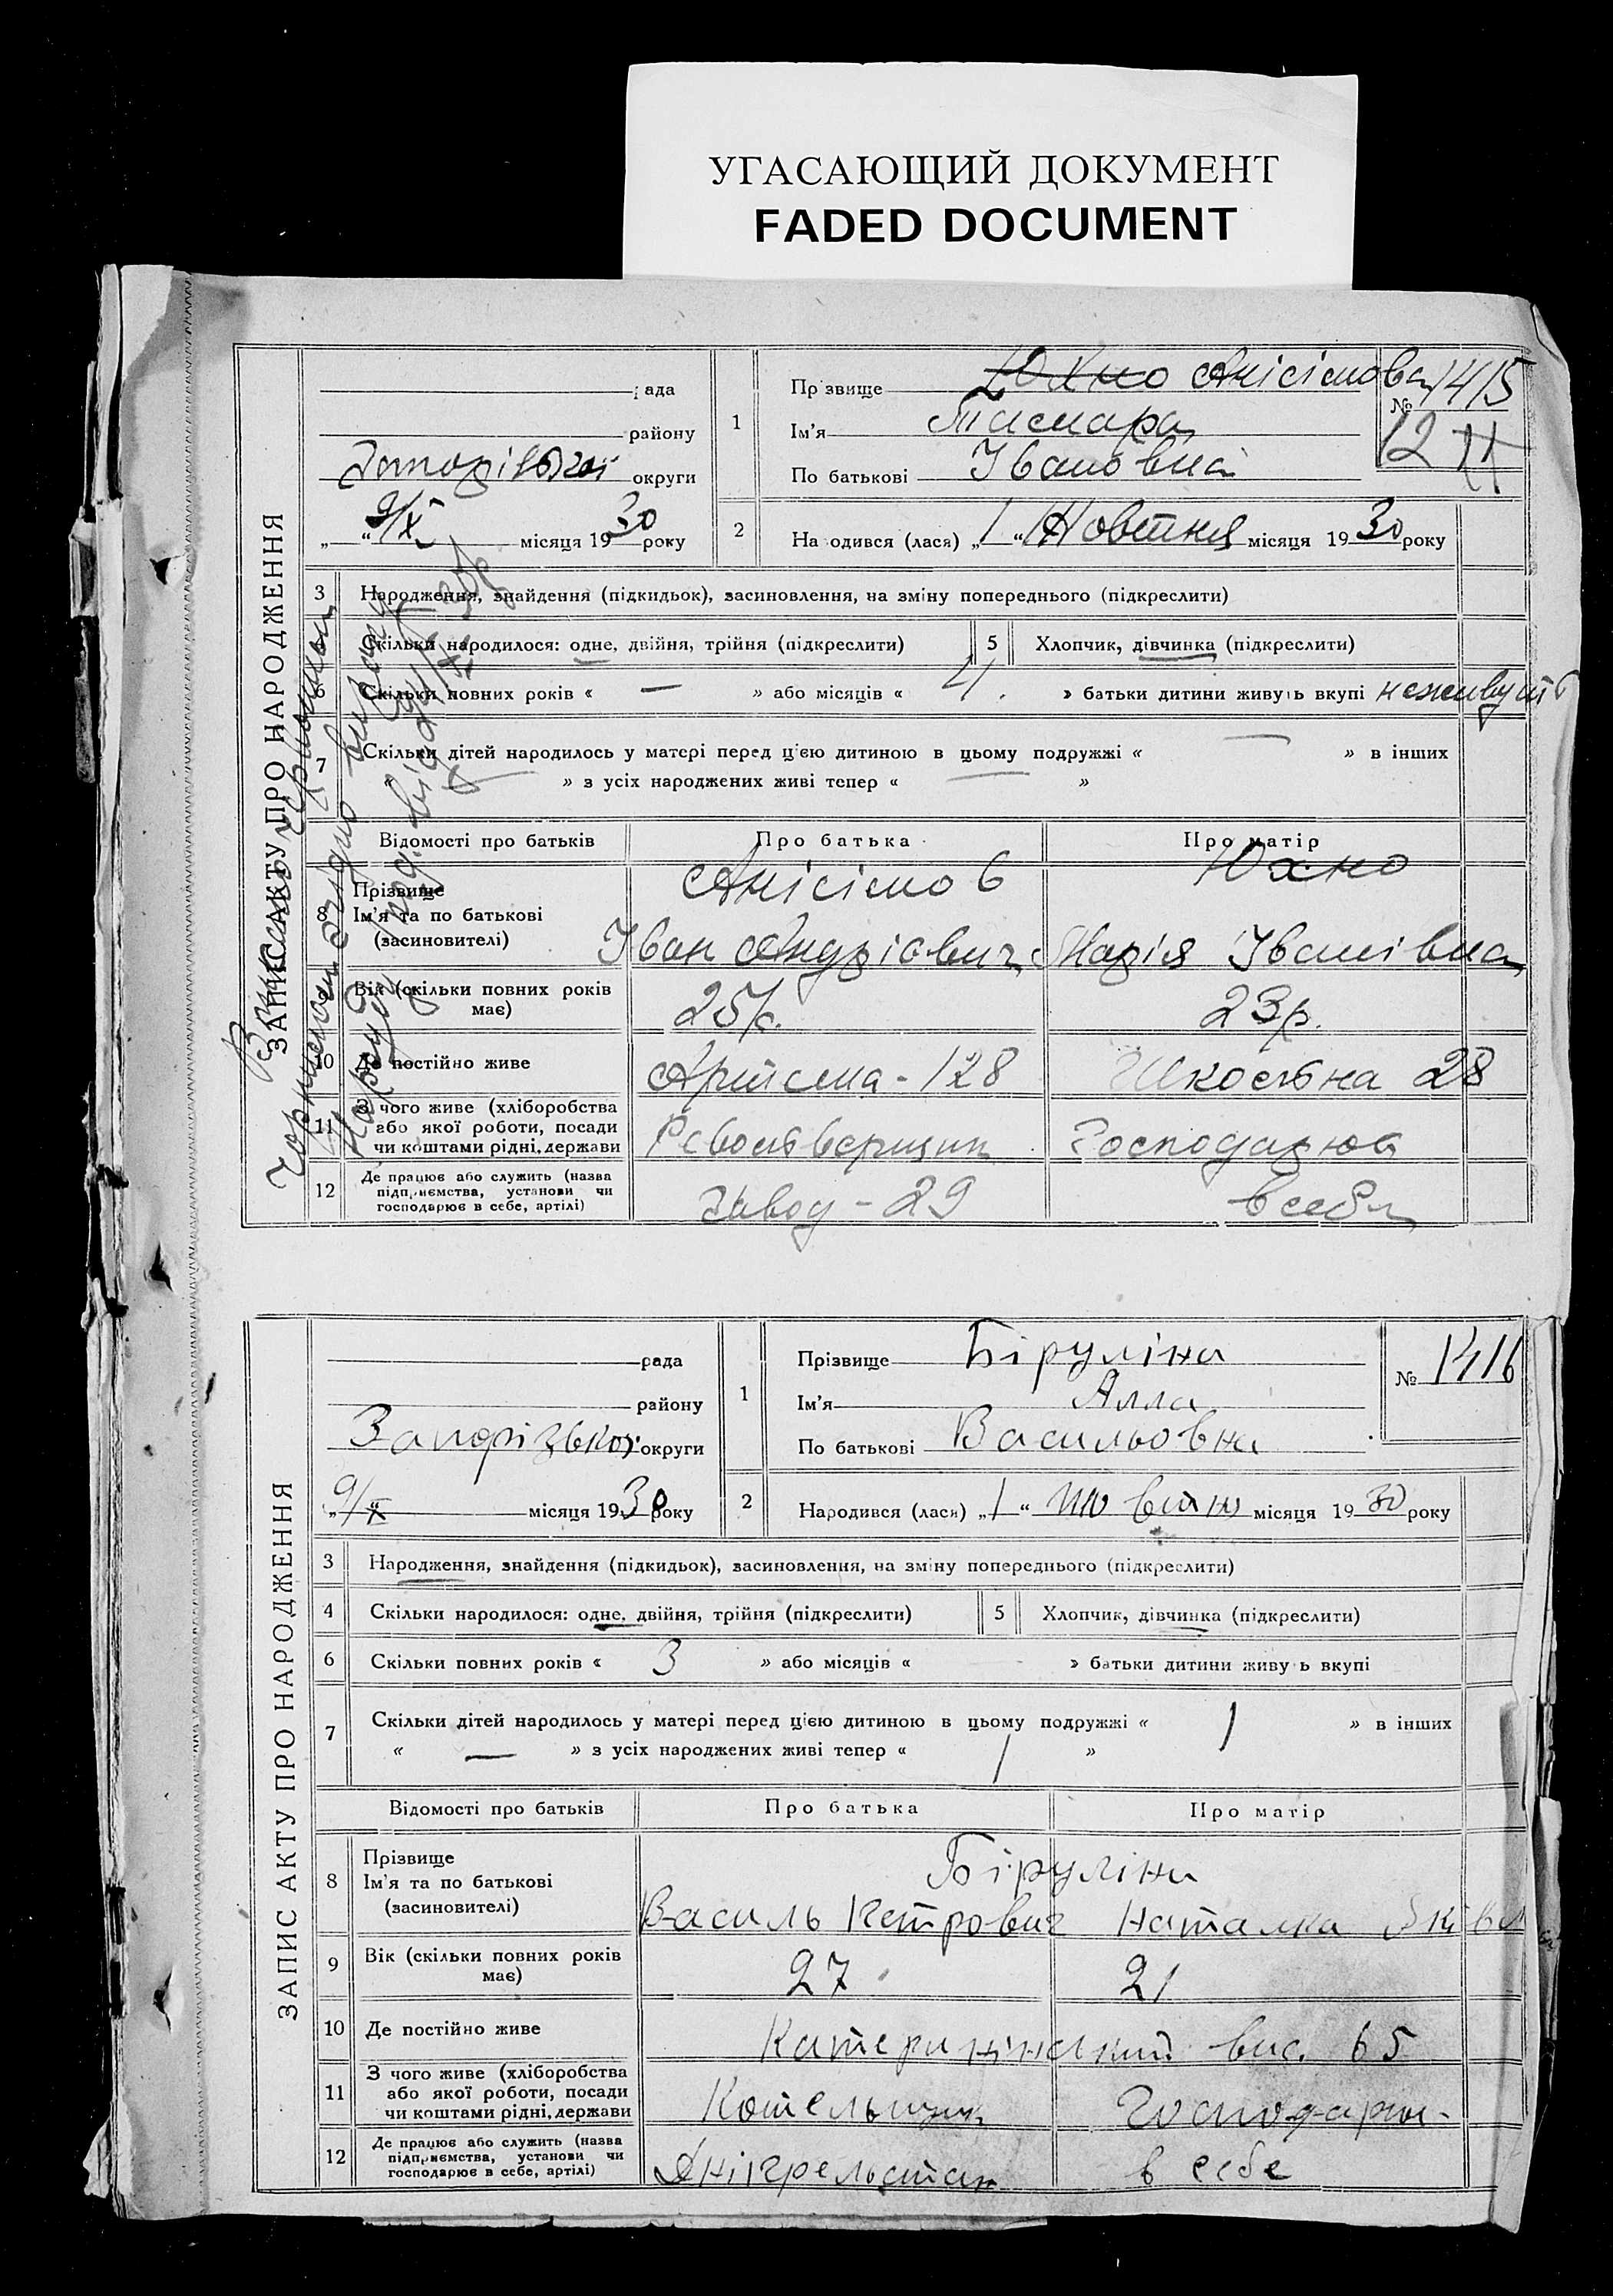 УГАСАЮЩИЙ ДОКУМЕНТ
FADED DOCUMENT
ЗАПИС АКТУ ПРО НАРОДЖЕННЯ
ада
району
округи
„ “ 9/X місяця 1930 року
1
Пр звище Юхно Анісімова
Ім'я Тамара
По батькові Івановна
№ 1415
12
2
На одився (лася) „1“ Жовтня місяця 1930 року
3 Народження, знайдення (підкидьок), засиновлення, на зміну попереднього (підкреслити)
Скільки народилося: одне, двійня, трійня (підкреслити)
5 Хлопчик, дівчинка (підкреслити)
6 Скільки повних років « — » або місяців « » батьки дитини живуть вкупі не живуть
7 Скільки дітей народилось у матері перед цією дитиною в цьому подружжі « — » в інших
« — » з усіх народжених живі тепер « — »
Відомості про батьків Про батька Про матір
8 Прізвище
Ім'я та по батькові
(засиновителі)
Анісімов
Іван Андрієвич
Юхно
Марія Іванівна
Вік (скільки повних років має)
25 р.
23 р.
10 Де постійно живе
Артема - 128
Шкільна 28
11 З чого живе (хліборобства
або якої роботи, посади
чи коштами рідні, держави
Револьверщик
Господарює
12 Де працює або служить (назва
підприємства, установи чи
господарює в себе, артілі)
Завод - 29
в себе
ЗАПИС АКТУ ПРО НАРОДЖЕННЯ
рада
району
Запорізької округи
„9/X“ місяця 1930 року
1
Прізвище Біруліна
Ім'я Алла
По батькові Васильовна
№ 1416
2
Народився (лася) „1“ жовтня місяця 1930 року
3 Народження, знайдення (підкидьок), засиновлення, на зміну попереднього (підкреслити)
4 Скільки народилося: одне, двійня, трійня (підкреслити)
5 Хлопчик, дівчинка (підкреслити)
6 Скільки повних років « 3 » або місяців « » батьки дитини живу ь вкупі
7 Скільки дітей народилось у матері перед цією дитиною в цьому подружжі « 1 » в інших
« — » з усіх народжених живі тепер « 1 »
Відомості про батьків Про батька Про матір
8 Прізвище
Ім'я та по батькові
(засиновителі)
Біруліни
Василь Петрович
Наталка
9 Вік (скільки повних років має)
27
21
10 Де постійно живе
Катеринінський вис. 65
11 З чого живе (хліборобства
або якої роботи, посади
чи коштами рідні, держави
Котельщик
Господарює
12 Де працює або служить (назва
підприємства, установи чи
господарює в себе, артілі)
в себе